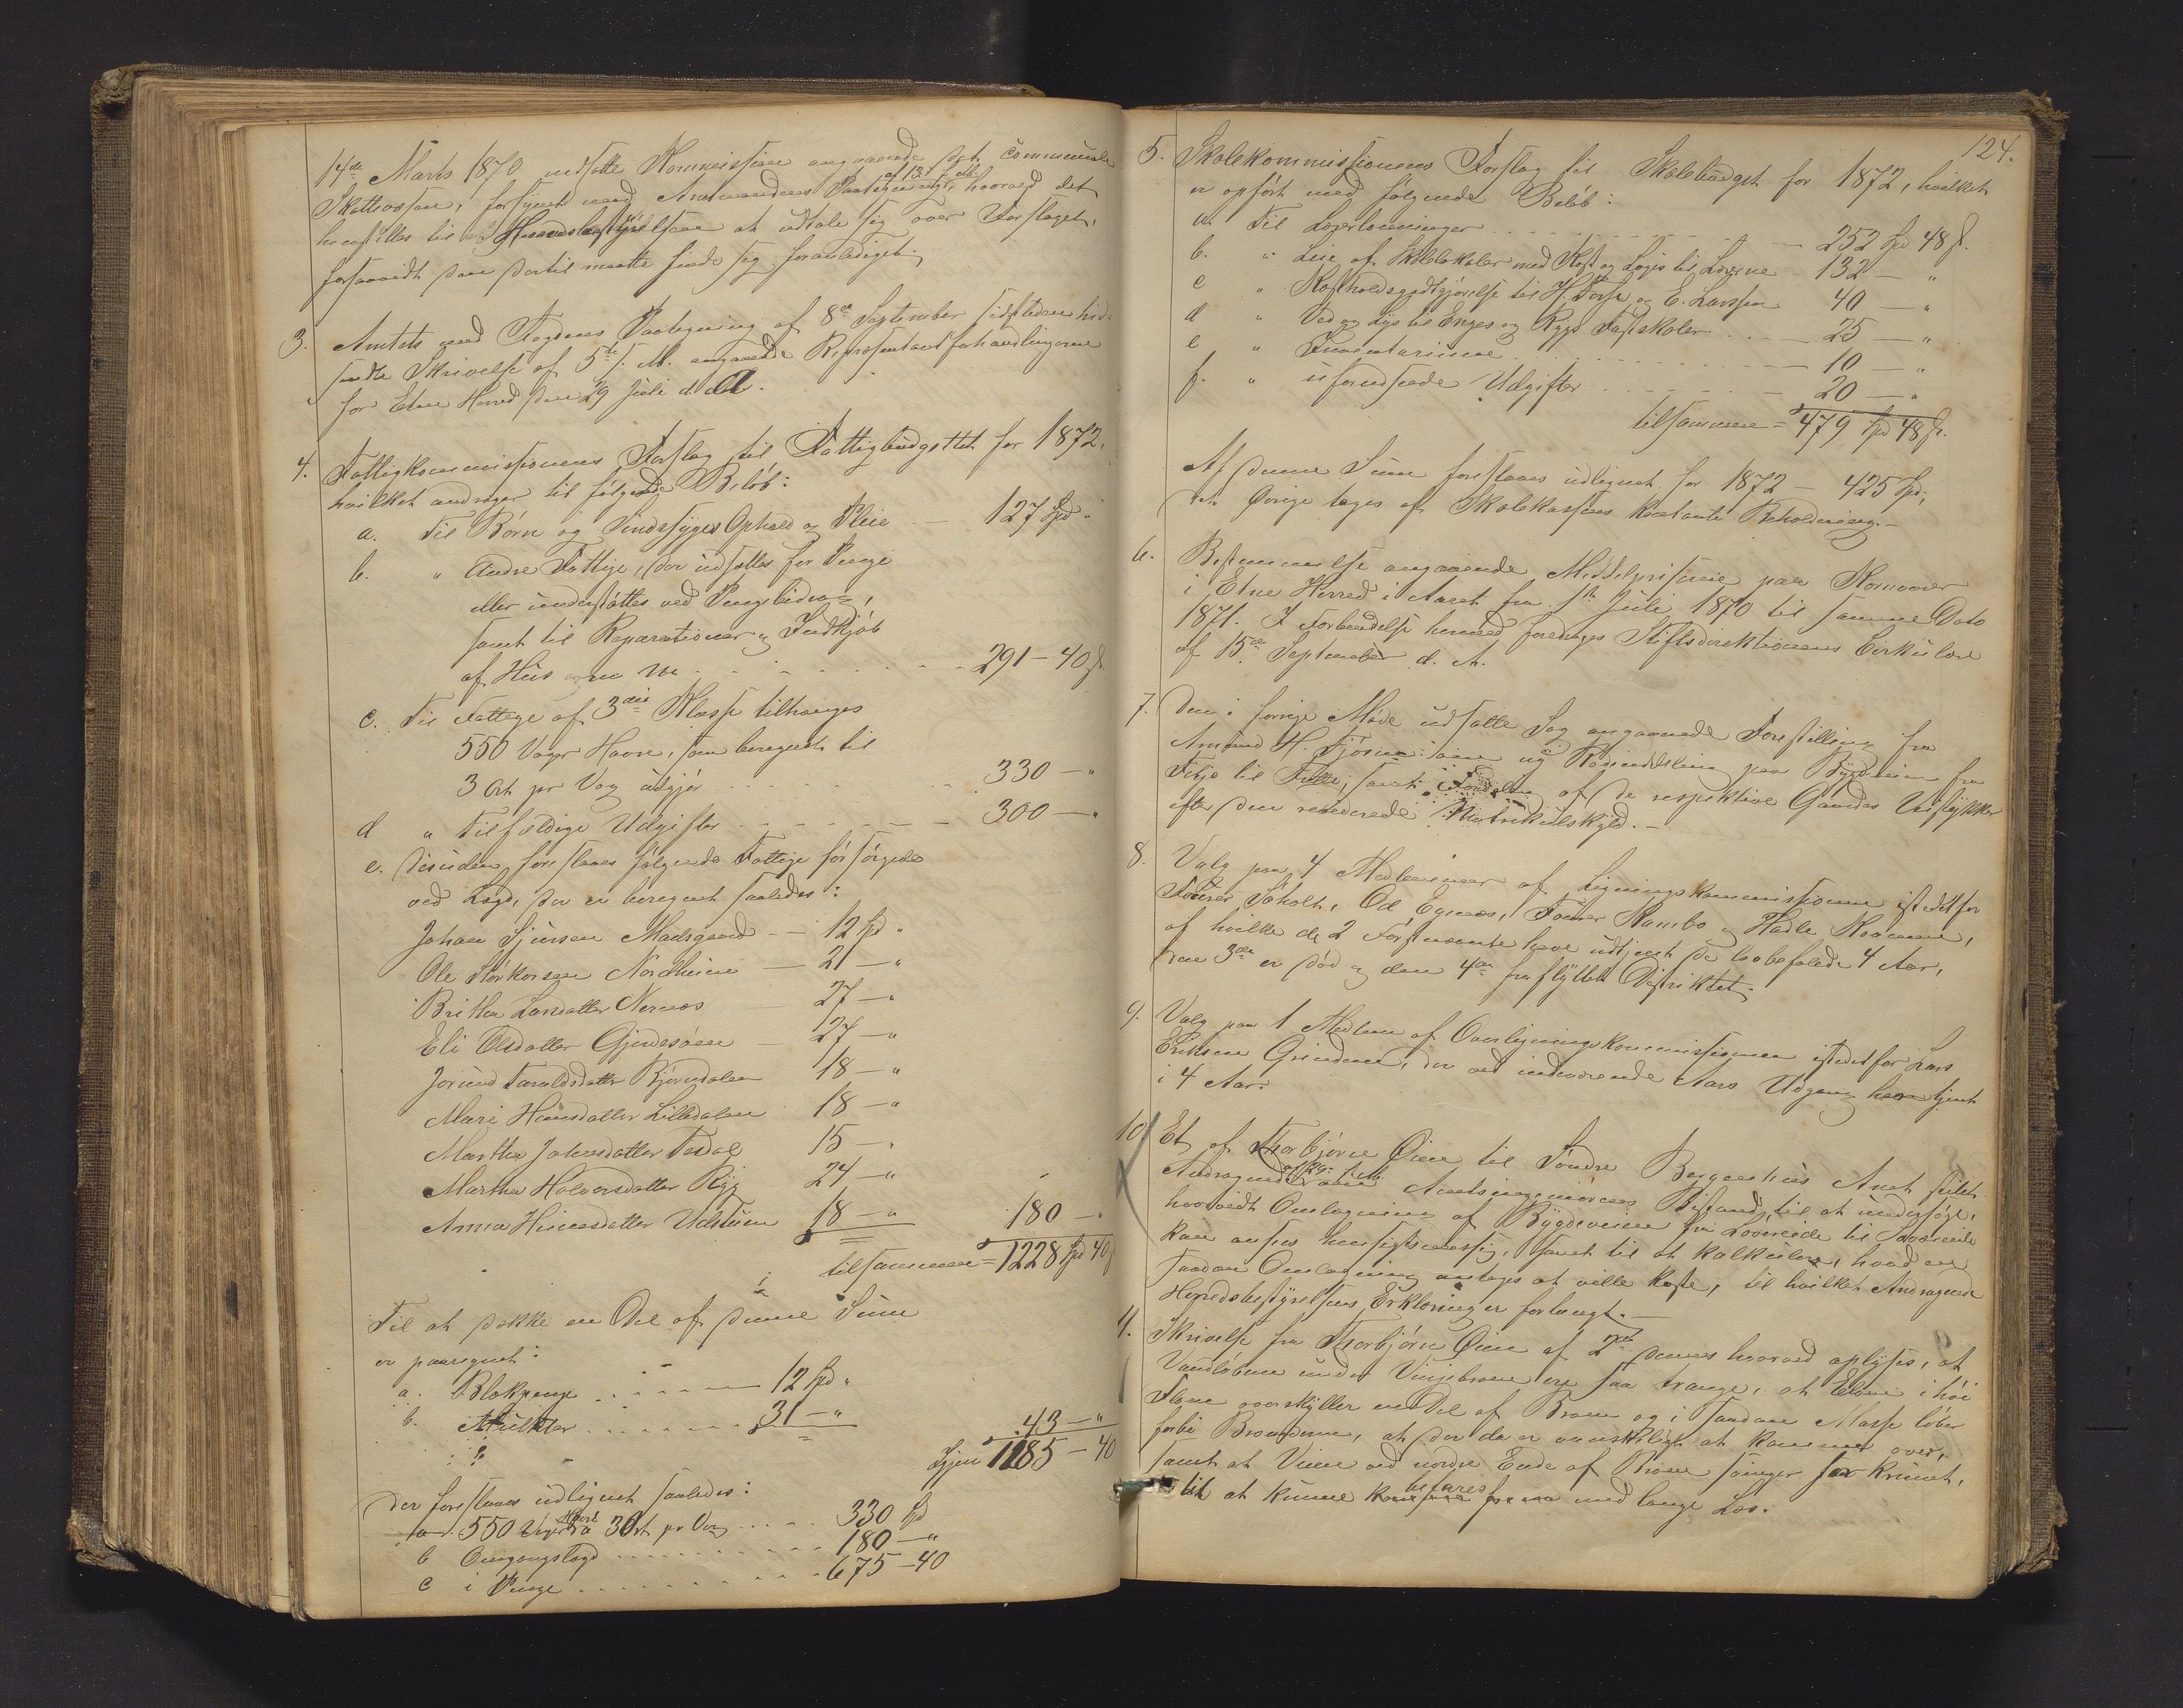 14de Marts 1870 nedsatte Kommission angaaende det communale
Skattevæsen, forsynet med Amtmandens Paategning af 13 f. M., hvorved det
henstilles til Herredsbestyrelsen at udtale sig over Forslaget,
forsaavidt den dertil maatte finde sig foranlediget.
3. Amtets med Fogdens Paategning af 8de September sidstleden hid-
sendte Skrivelse af 5te s. M. angaaende Repræsentantforhandlingerne
for Etne Herred den 29 Juli d. A.
4. Fattigkommissionens Forslag til Fattigbudgettet for 1872,
hvilket andrager til følgende Beløb:
a. Til Børn og Sindssyges Ophold og Pleie — 127 Spd "
b. " Andre Fattige, der udsættes for Penge
eller understøttes ved Pengebidrag,
samt til Reparationer og Indkjøb
af Hus m m 291 – 40 s.
c. Til Fattige af 3die Klasse tilhanges
550 Voger Havre, som beregnet til
3 Ort pr Vog udgjør 330 — "
d " Tilfældige Udgifter 300 — "
e. Desuden foreslaaes følgende Fattige forsørgede
ved Lægd, der er beregnet saaledes:
Johan Sjursen Madsgaard — 12 Spd "
Ole Størkorsen Nordheim — 21 — "
Britha Larsdatter Nernæs 27 — "
Eli Olsdatter Gjerdesøen — 27 — "
Jorund Taraldsdatter Bjørndalen 18 — "
Mari Hansdatter Lilledalen 18 — "
Martha Johansdatter Tesdal 15 — "
Martha Halvorsdatter Ryg 24 — "
Anna Hinesdatter Udstuen 18 — " 180 — "
tilsammen = 1228 Spd 40 s
Til at dække en Del af denne Sum
er paaregnet:
a. Blokpenge 12 Spd "
b. Mulkter 31 — " 43 — "
Igjen 1185 – 40
der foreslaaes udlignet saaledes:
a. 550 Voger Havre a 3 Ort pr Vog 330 Spd
b Omgangslægd 180 — "
c i Penge 675 – 40
124.
5. Skolekommissionens Forslag til Skolebudget for 1872, hvilket
er opført med følgende Beløb:
a. Til Lærerlønninger 252 Spd 48 s.
b. " Leie af Skolelokaler med Kost og Logis til Lærerne – 132 — "
c " Kostholdsgodtgjørelse til H. Torse og E. Larssen 40 — "
d " Ved og Lys til Enges og Rygs Fastskoler 25 — "
e " Inventarium 10 — "
f. " uforudseede Udgifter 20 — "
tilsammen = 479 Spd 48 s.
Af denne Sum foreslaaes udlignet for 1872 — 425 Spd;
det Øvrige tages af Skolekassens kontante Beholdning. –
6. Bestemmelse angaaende Middelpriserne paa Kornvarer
i Etne Herred i Aaret fra 1ste Juli 1870 til samme Dato
1871. I Forbindelse hermed foredrages Stiftsdirektionens Cirkulære
af 15de September d. A.
7. Den i forrige Møde udsatte Sag angaaende Forestilling fra
Amund H. Fjøsne om ny Rodeinddeling paa Bygdeveien fra
Silje til Frette, samt Fordeling af de respektive Gaardes Veistykker
efter den reviderede Matrikulskyld. –
8. Valg paa 4 Medlemmer af Ligningskommissionen istedetfor
Tørres Søholt, Od Egenæs, Tomas Kambo og Hadle Kaarene,
af hvilke de 2 Førstnævnte have udtjent de lovbefalede 4 Aar,
den 3die er død og den 4de fraflyttet Distriktet.
9. Valg paa 1 Medlem af Overligningskommissionen istedetfor Lars
Eriksen Grindem, der ved indeværende Aars Udgang har tjent
i 4 Aar.
10. Et af Thorbjørn Øien til Søndre Bergenhus Amt stilet
Andragende af 29 f. M. om Amtsingeniørens Bistand til at undersøge,
hvorvidt Omlægning af Bygdeveien fra Løvereide til Sævereide
kan ansees hensigtsmæssig, samt til at kalkulere, hvad en
saadan Omlægning antages at ville koste, til hvilket Andragende
Herredsbestyrelsens Erklæring er forlangt. –
11. Skrivelse fra Thorbjørn Øien af 2den dennes hvorved oplyses, at
Vandløbene under Vinjebroen ere saa trange, at Elven i høi
Flom overskyller en Del af Broen og i saadan Masse løber
forbi Broenderne, at der da er vanskeligt at komme over,
samt at Veien ved nordre Ende af Broen svinger for krumt,
til at kunne befares med lange Læs.